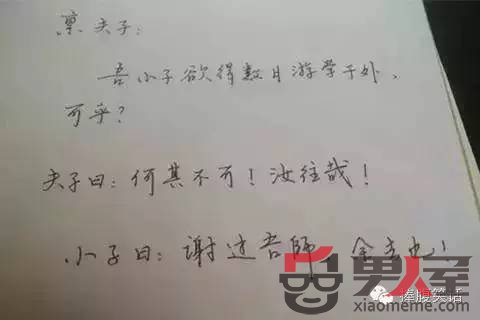 禀夫子:
吾小子欲得数月游学于外,
可乎?
夫子曰:何其不可!汝往哉!
小子曰:谢过吾師,余去也!
男人屋
捧腹笑话
xiaomeme.com